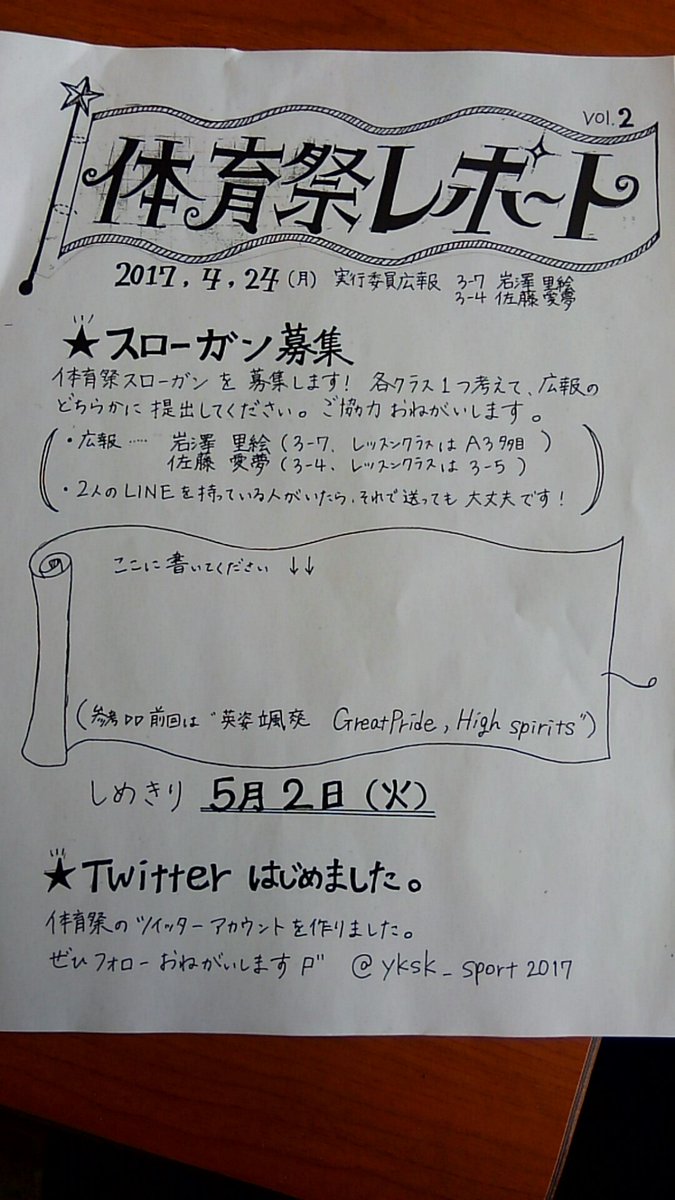 vol.2
体育祭レポート
2017,4,24(月) 実行委員広報 3-7 岩澤 里絵
3-4 佐藤 愛夢
★スローガン募集
体育祭スローガンを募集します! 各クラス1つ考えて、広報の
どちらかに提出してください。ご協力おねがいします。
・広報‥‥ 岩澤 里絵(3-7、レッスンクラスはA3多目)
佐藤 愛夢(3-4、レッスンクラスは3-5)
・2人のLINEを持っている人がいたら、それで送っても大丈夫です!
ここに書いてください ↓↓
(参考 前回は"英姿颯爽 GreatPride, High spirits")
しめきり 5月2日(火)
★Twitterはじめました。
体育祭のツイッターアカウントを作りました。
ぜひフォローおねがいします @yksk_sport2017